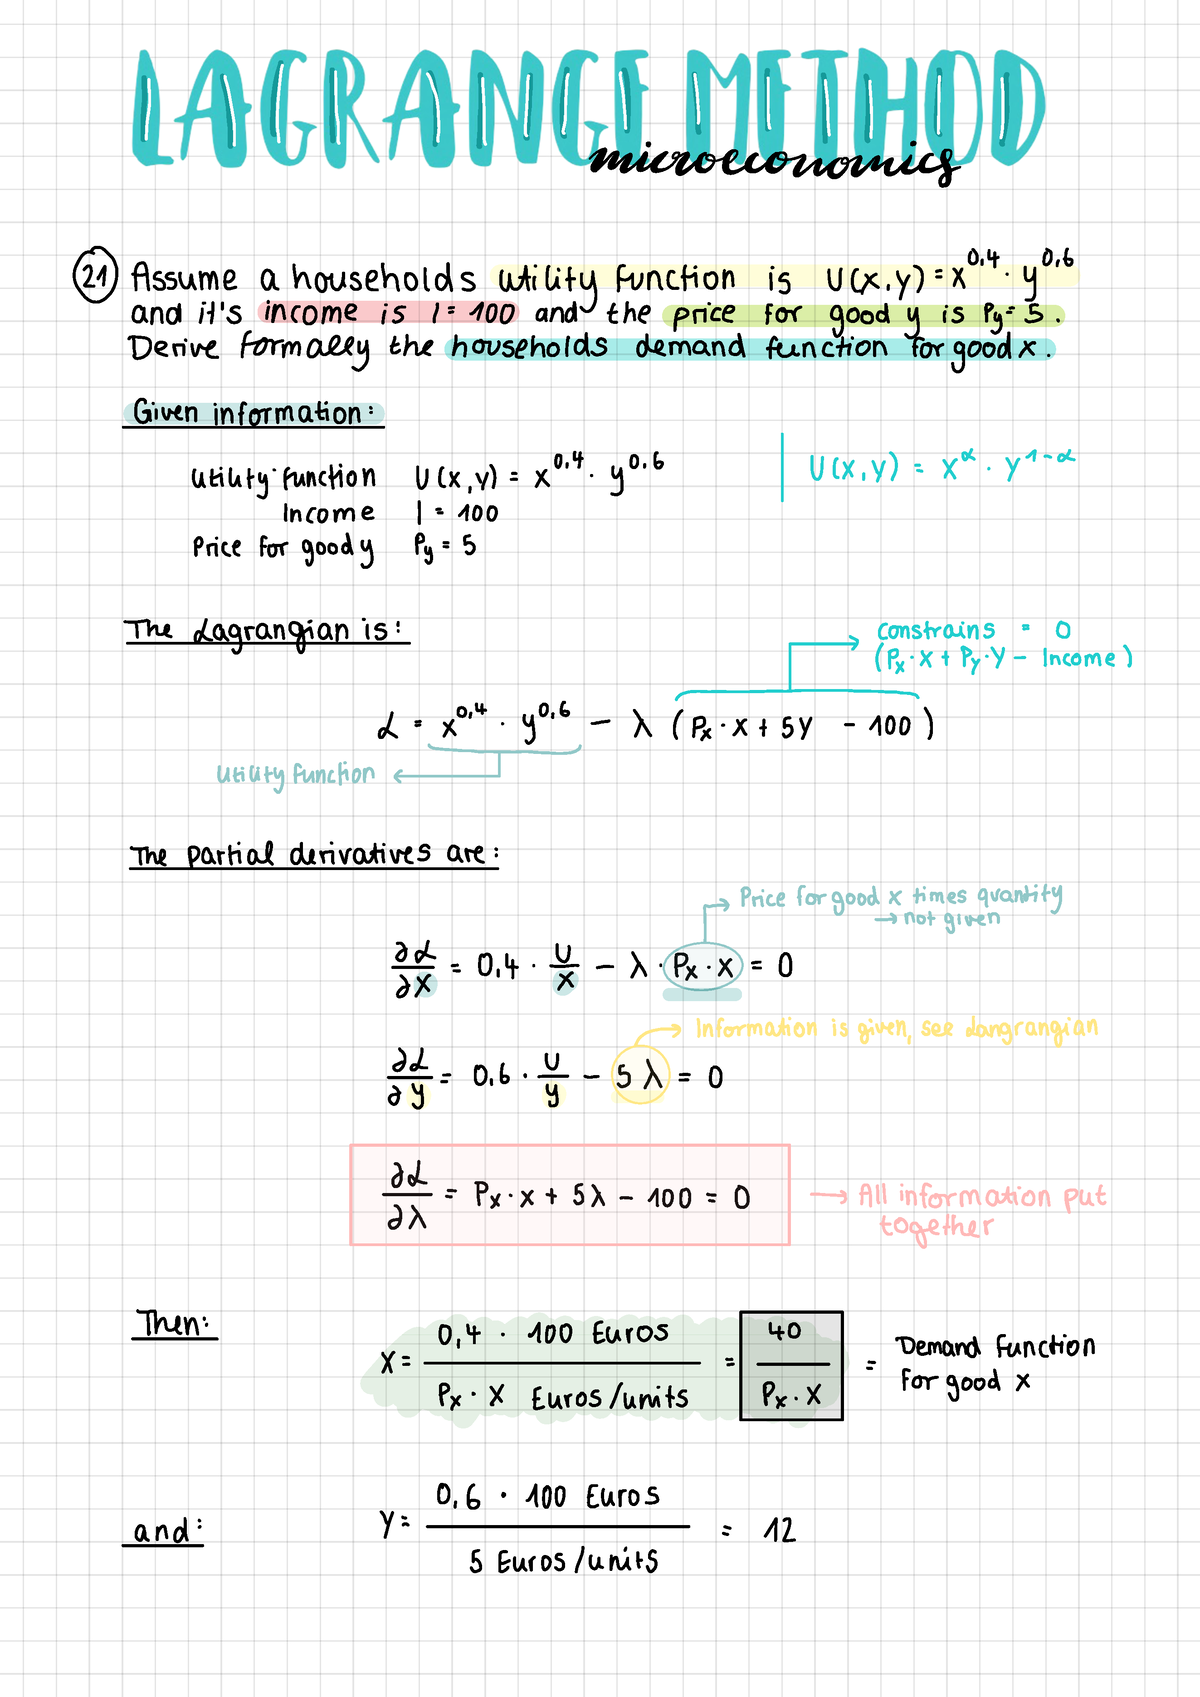 LAGRANGE METHOD
microeconomics
21 Assume a households utility function is U(x,y) = x^0,4 · y^0,6
and it's income is I = 100 and the price for good y is Py = 5.
Derive formally the households demand function for good x.
Given information:
Utility function U(x,y) = x^0,4 · y^0,6 | U(x,y) = x^α · y^1-α
Income I = 100
Price for good y Py = 5
The Lagrangian is:
constrains = 0
(Px · X + Py · Y - Income)
L = x^0,4 · y^0,6 - λ (Px · X + 5Y - 100)
Utility function
The partial derivatives are:
Price for good x times quantity
→ not given
∂L/∂X = 0,4 · U/X - λ · Px · X = 0
Information is given, see Langrangian
∂L/∂y = 0,6 · U/y - 5 λ = 0
∂L/∂λ = Px · x + 5λ - 100 = 0 → All information put
together
Then: X = 0,4 · 100 Euros / Px · X Euros/units = 40 / Px · X = Demand function
for good x
and: Y = 0,6 · 100 Euros / 5 Euros/units = 12